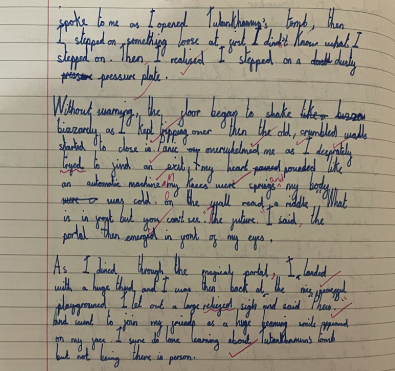 spoke to me as I opened Tutankhamun's tomb, then
I stepped on something loose at first I didn't know what I
stepped on. Then I realised I stepped on a dusty
pressure plate.
Without warning, the floor began to shake
as I kept tripping over then the old, crumbled walls
started to close in. Panic overwhelmed me as I desperately
tried to find an exit, my heart pounded like
an automatic machine my knees were springs my body
was cold. On the wall read a riddle "What
is in front but you can't see. "the future." I said, the
portal then emerged in front of my eyes.
As I dived through the magicaly portal, I landed
with a huge thud and I was then back at the nice
playground. I let out a large relieved sigh and said "phew"
and went to join my friends as a huge beaming smile appeared
on my face. I sure do love learning about Tutankhamun's tomb
but not being there in person.